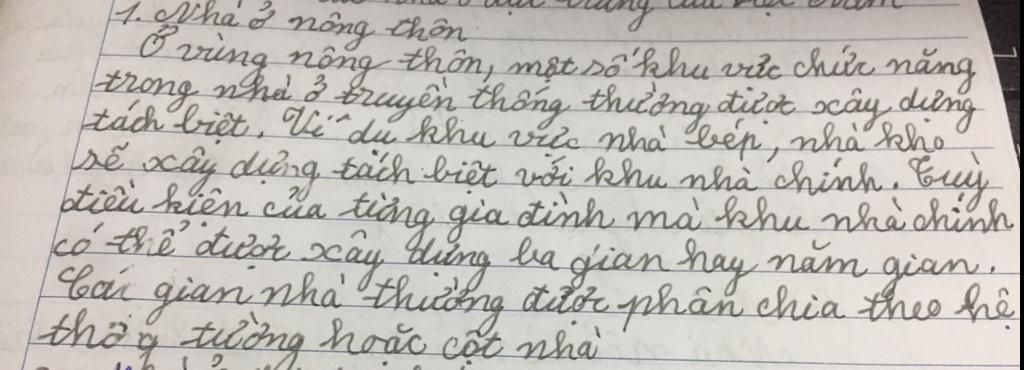 1. Nhà ở nông thôn
Ở vùng nông thôn, một số khu vực chức năng
trong nhà ở truyền thống thường được xây dựng
tách biệt. Ví dụ khu vực nhà bếp, nhà kho
sẽ xây dựng tách biệt với khu nhà chính. Tuỳ
điều kiện của từng gia đình mà khu nhà chính
có thể được xây dựng ba gian hay năm gian.
Các gian nhà thường được phân chia theo hệ
thống tường hoặc cột nhà